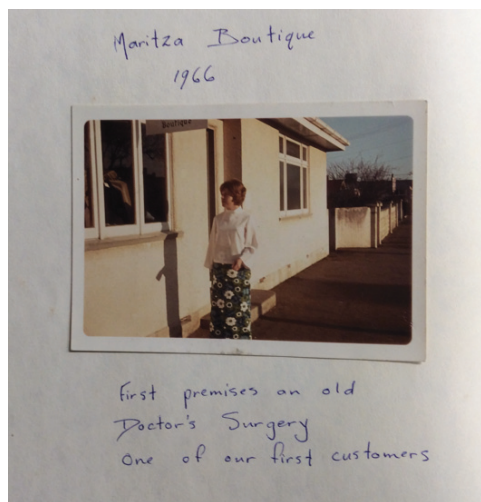 Maritza Boutique
1966
Boutique
First premises an old
Doctor's Surgery
One of our first customers